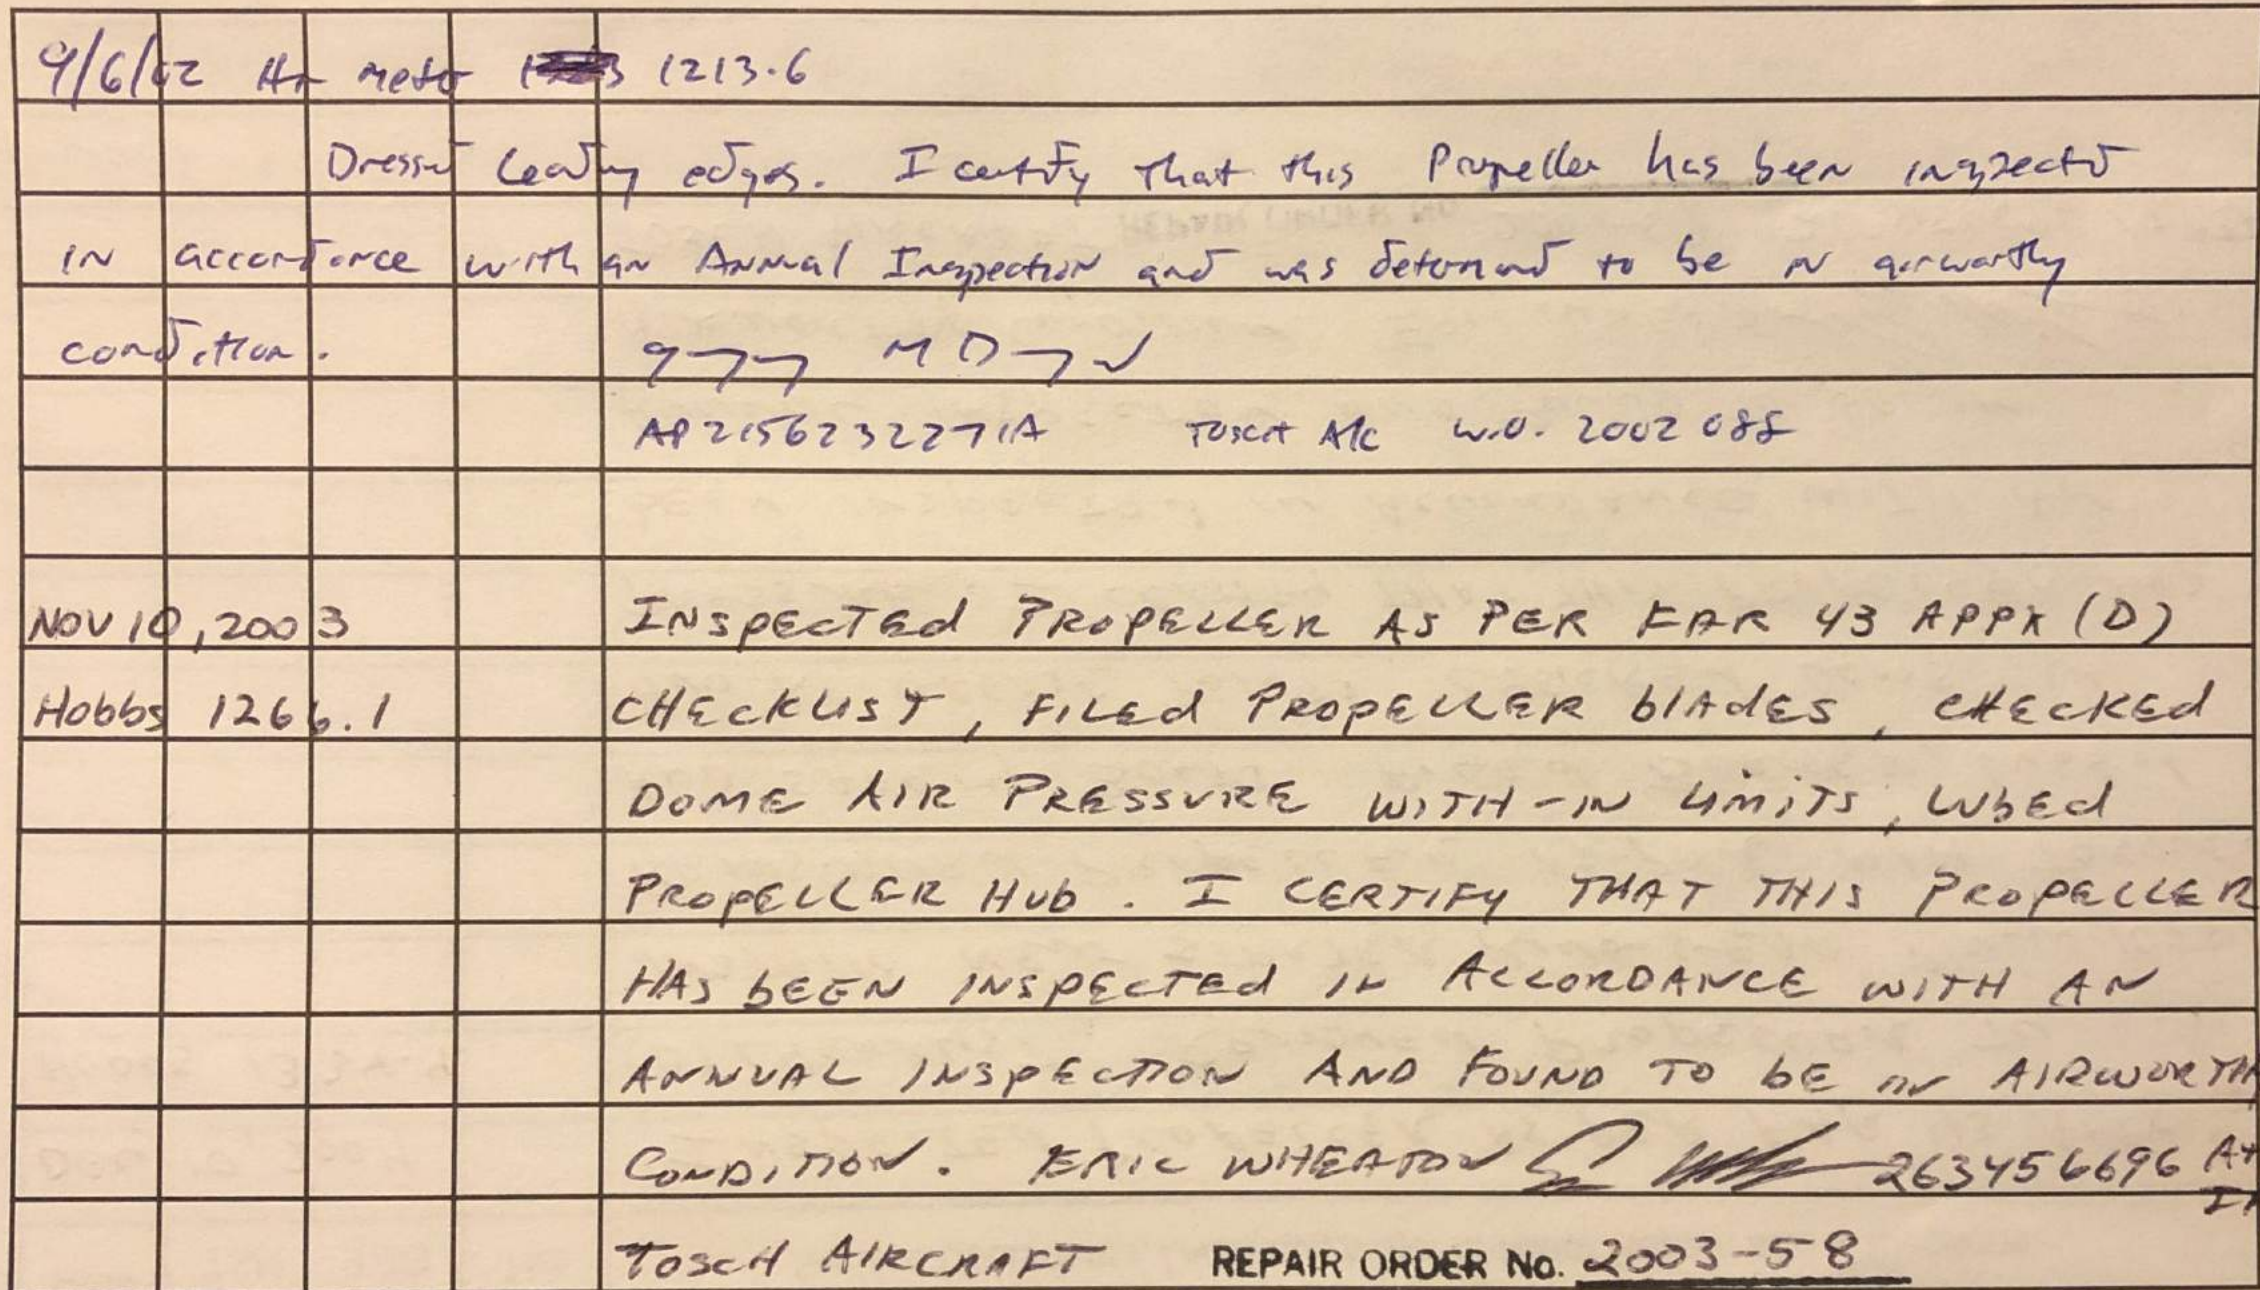 9/6/02 Hr meter 1213.6
Dressed leading edges. I certify that this Propeller has been inspected
in accordance with an Annual Inspection and was determined to be in airworthy
condition.
AP215623227IA Tosch A/C W.O. 2002 088
NOV 10, 2003 INSPECTED PROPELLER AS PER FAR 43 APPX (D)
Hobbs 1266.1 CHECKLIST, FILED PROPELLER blADES, CHECKED
DOME AIR PRESSURE WITH-IN LIMITS, LUBED
PROPELLER HUB. I CERTIFY THAT THIS PROPELLER
HAS bEEN INSPECTED IN ACCORDANCE WITH AN
ANNUAL INSPECTION AND FOUND TO bE IN AIRWORTH
CONDITION. ERIC WHEATON 263456696 A+
TOSCH AIRCRAFT REPAIR ORDER No. 2003-58